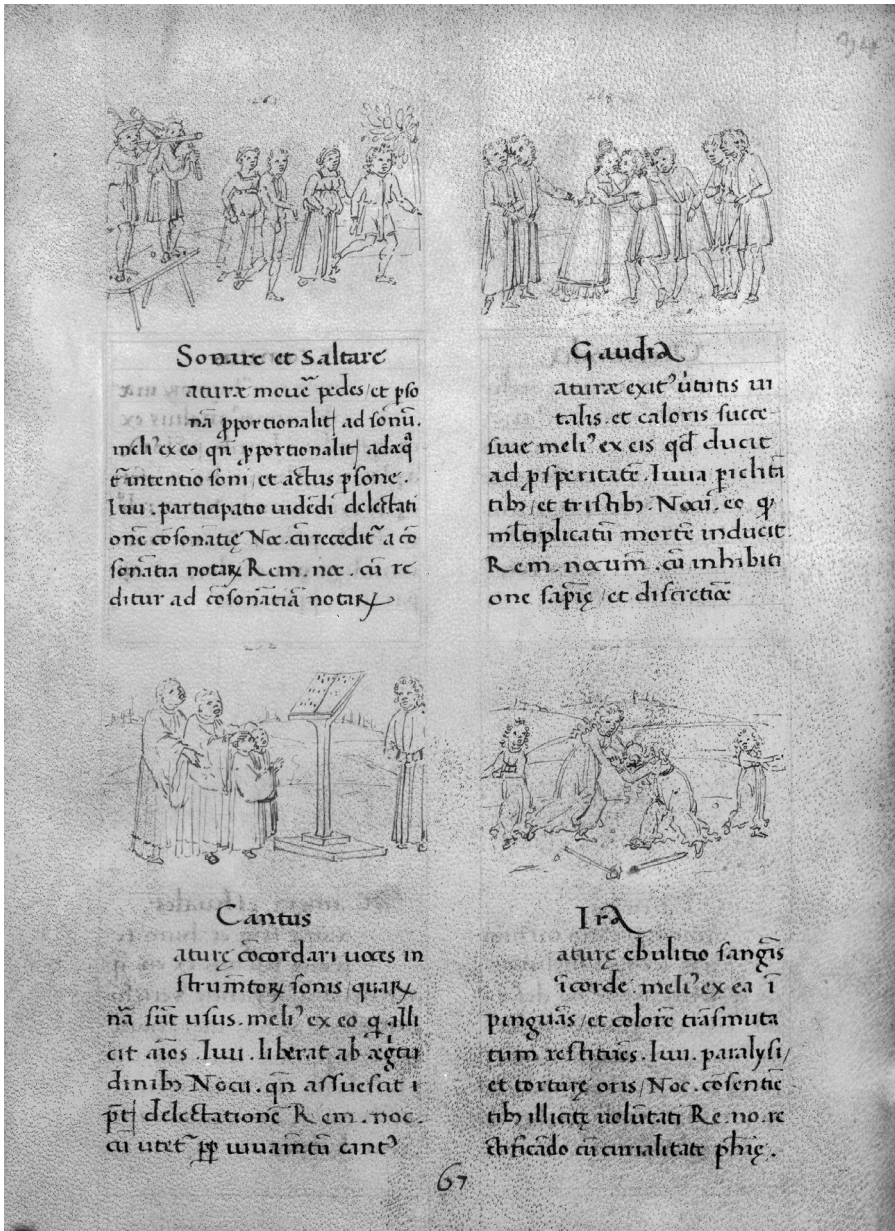 Sonare et Saltare
aturæ mouē pedes/et pso
nā pportionalit ad sonū.
meliꝰ ex eo qn̄ pportionalit adæq̄
t intentio soni/et actus psone.
Iuu. participatio uidēdi delectati
onē cōsonatię Noc. cū recedit a cō
sonātia notaꝝ Rem. noc. cū re
ditur ad cōsonātiā notaꝝ
Gaudia
aturæ exitꝰ uirtutis ui
talis. et caloris succe-
siue meliꝰ ex eis qd̄ ducit
ad psperitatē. Iuua piclita
tibꝫ/et tristibꝫ. Nocu. eo q
mltiplicatū mortē inducit.
Rem. nocum. cū inhibiti
one sapię/et discretiōe
Cantus
aturę cōcordari uoces in
strumtoꝝ sonis quaꝝ
nā sūt usus. meliꝰ ex eo q alli
cit aīos. Iuu. liberat ab ægtu
dinibꝫ Nocu. qn̄ assuescit i
delectatione Rem. noc.
cū utet pp iuuamtū cantꝰ
Ira
aturę ebulitio sanḡis
ī corde. meliꝰ ex ea ī
pinguās/et colorē trāsmuta
tum restituēs. Iuu. paralysi/
et torturę oris/Noc. cōsentiē
tibꝫ illicitę uolūtati Re. no. re
ctificādo cū curialitate phię.
67